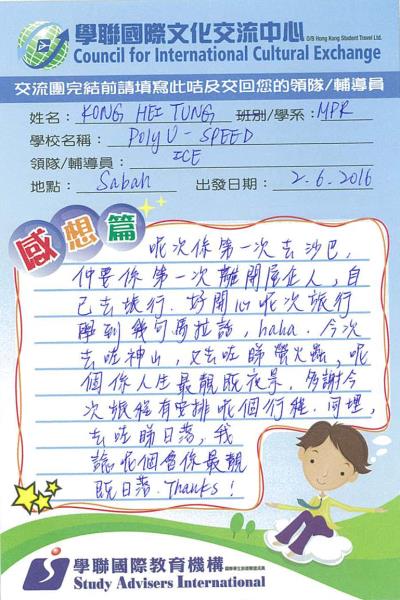 學聯國際文化交流中心 O/B Hong Kong Student Travel Ltd.
Council for International Cultural Exchange
交流團完結前請填寫此咭及交回您的領隊/輔導員
姓名：KONG HEI TUNG 班別/學系：MPR
學校名稱：Poly U - SPEED
領隊/輔導員：ICE
地點：Sabah 出發日期：2.6.2016
感想篇
呢次係第一次去沙巴，
仲要係第一次離開屋企人，自
己去旅行. 好開心呢次旅行
學到幾句馬拉話，haha. 今次
去咗神山，又去咗睇螢火蟲，呢
個係人生最靚既夜景. 多謝今
次旅程有安排呢個行程. 同埋，
去咗睇日落，我
諗呢個會係最靚
既日落. Thanks!
學聯國際教育機構
Study Advisers International